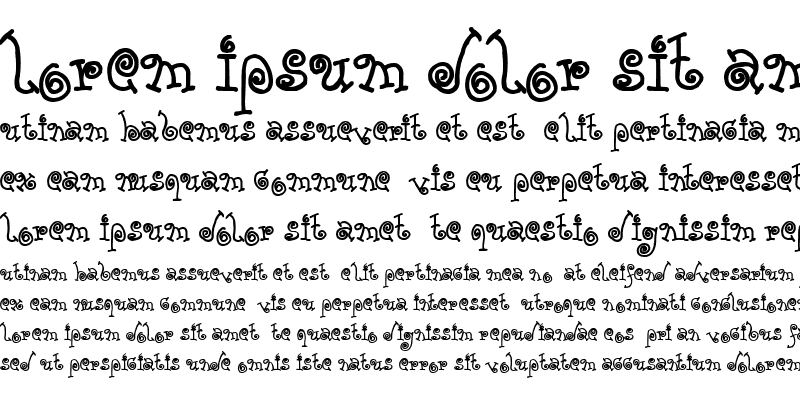 lorem ipsum dolor sit am
utinam habemus assueverit et est elit pertinacia m
ex eam nusquam commune vis eu perpetua interesset
lorem ipsum dolor sit amet te quaestio dignissim rep
utinam habemus assueverit et est elit pertinacia mea no at eleifend adversarium
ex eam nusquam commune vis eu perpetua interesset utroque nominati conclusione
lorem ipsum dolor sit amet te quaestio dignissim repudiandae eos pri an vocibus fa
sed ut perspiciatis unde omnis iste natus error sit voluptatem accusantium dolorem